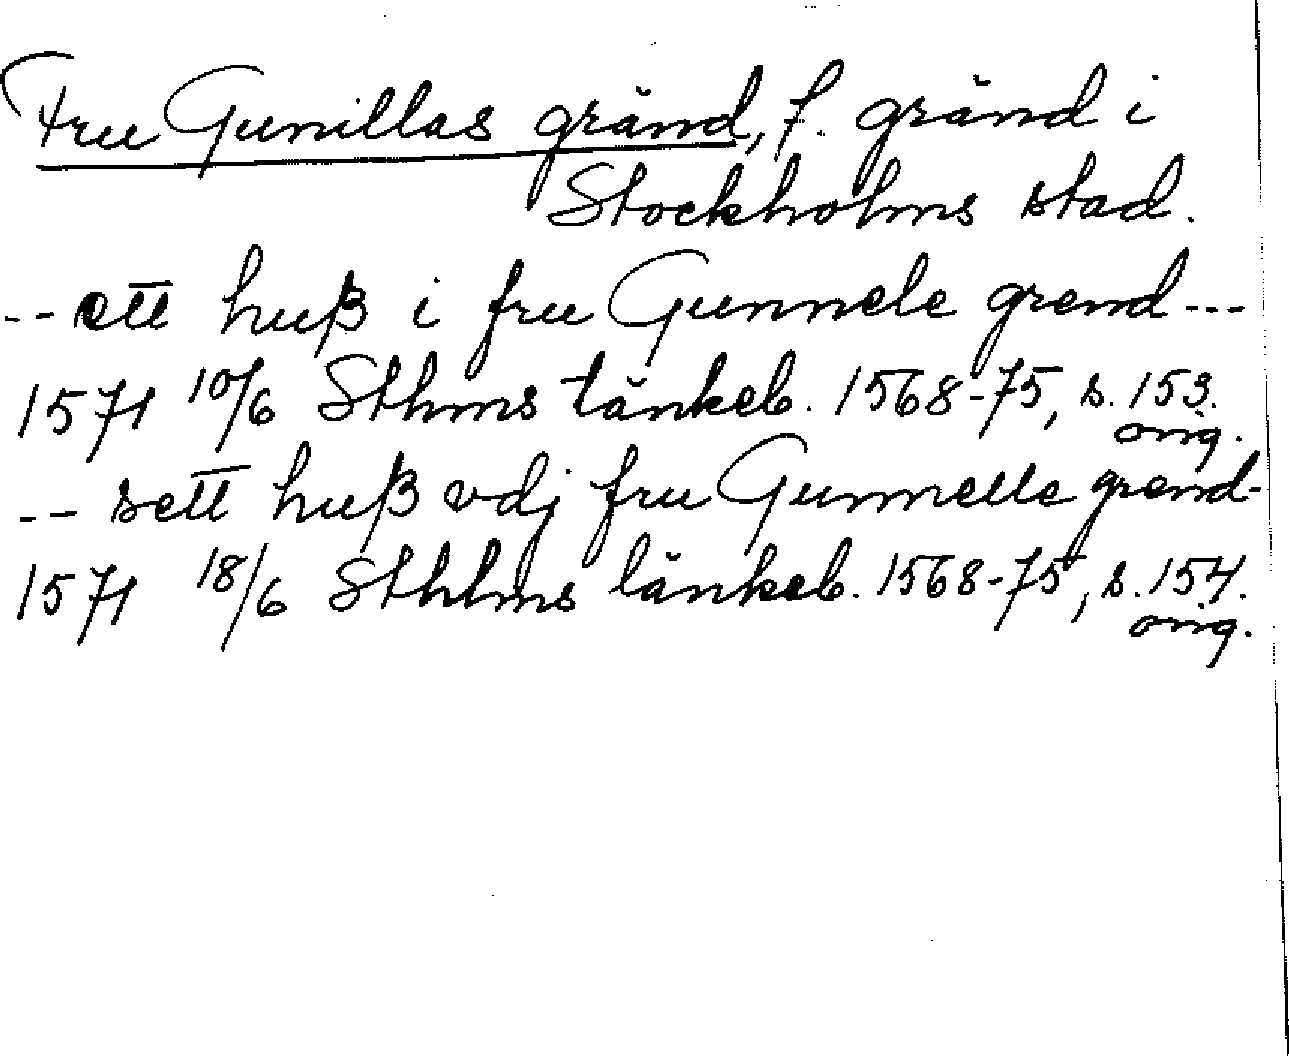 Fru Gunillas gränd, f. gränd i
Stockholms stad.
-- ett huß i fru Gunnele grend ---
1571 10/6 Sthms tänkeb. 1568-75, s. 153.
orig.
-- sett huß vdj fru Gunnelle grend-
1571 18/6 Sthlms tänkeb. 1568-75, s. 154.
orig.